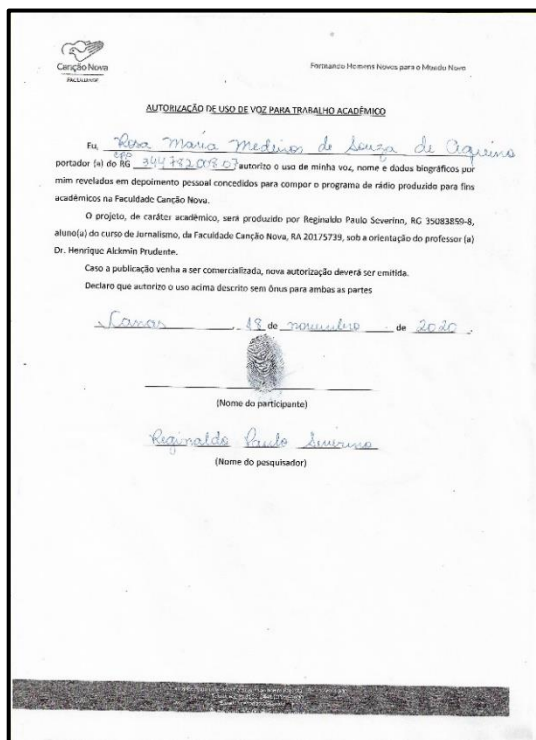 Canção Nova
FACULDADE
Formando Homens Novos para o Mundo Novo
AUTORIZAÇÃO DE USO DE VOZ PARA TRABALHO ACADÊMICO
Eu, Rosa Maria Medeiros de Souza de Aquino
CPF
portador (a) do RG autorizo o uso de minha voz, nome e dados biográficos por
mim revelados em depoimento pessoal concedidos para compor o programa de rádio produzido para fins
acadêmicos na Faculdade Canção Nova.
O projeto, de caráter acadêmico, será produzido por Reginaldo Paulo Severino, RG 35083859-8,
aluno(a) do curso de Jornalismo, da Faculdade Canção Nova, RA 20175739, sob a orientação do professor (a)
Dr. Henrique Alckmin Prudente.
Caso a publicação venha a ser comercializada, nova autorização deverá ser emitida.
Declaro que autorizo o uso acima descrito sem ônus para ambas as partes
Canas, 18 de novembro de 2020.
(Nome do participante)
Reginaldo Paulo Severino
(Nome do pesquisador)